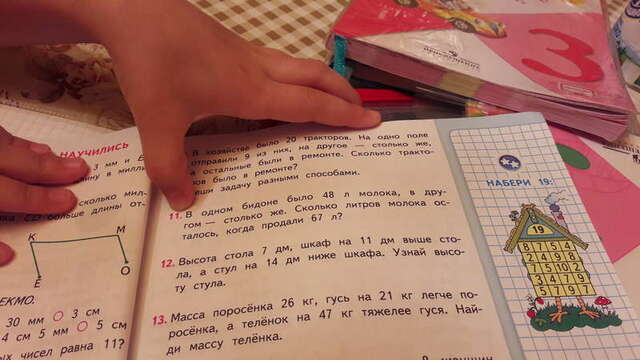 НАУЧИЛИСЬ
3 мм и
сколько мил-
больше длины от-
K
M
E
O
30 мм 3 см
4 см 5 мм 5 см
чисел равна 11?
В хозяйстве было 20 тракторов. На одно поле
отправили 9 из них, на другое — столько же,
остальные были в ремонте. Сколько тракто-
было в ремонте?
задачу разными способами.
11. В одном бидоне было 48 л молока, в дру-
гом — столько же. Сколько литров молока ос-
талось, когда продали 67 л?
12. Высота стола 7 дм, шкаф на 11 дм выше сто-
ла, а стул на 14 дм ниже шкафа. Узнай высо-
ту стула.
13. Масса поросёнка 26 кг, гусь на 21 кг легче по-
росёнка, а телёнок на 47 кг тяжелее гуся. Най-
ди массу телёнка.
3
НАБЕРИ 19:
19
8 1 5 4
2 4 9 7
7 5 10 2
3 6 7
5 7 9 7